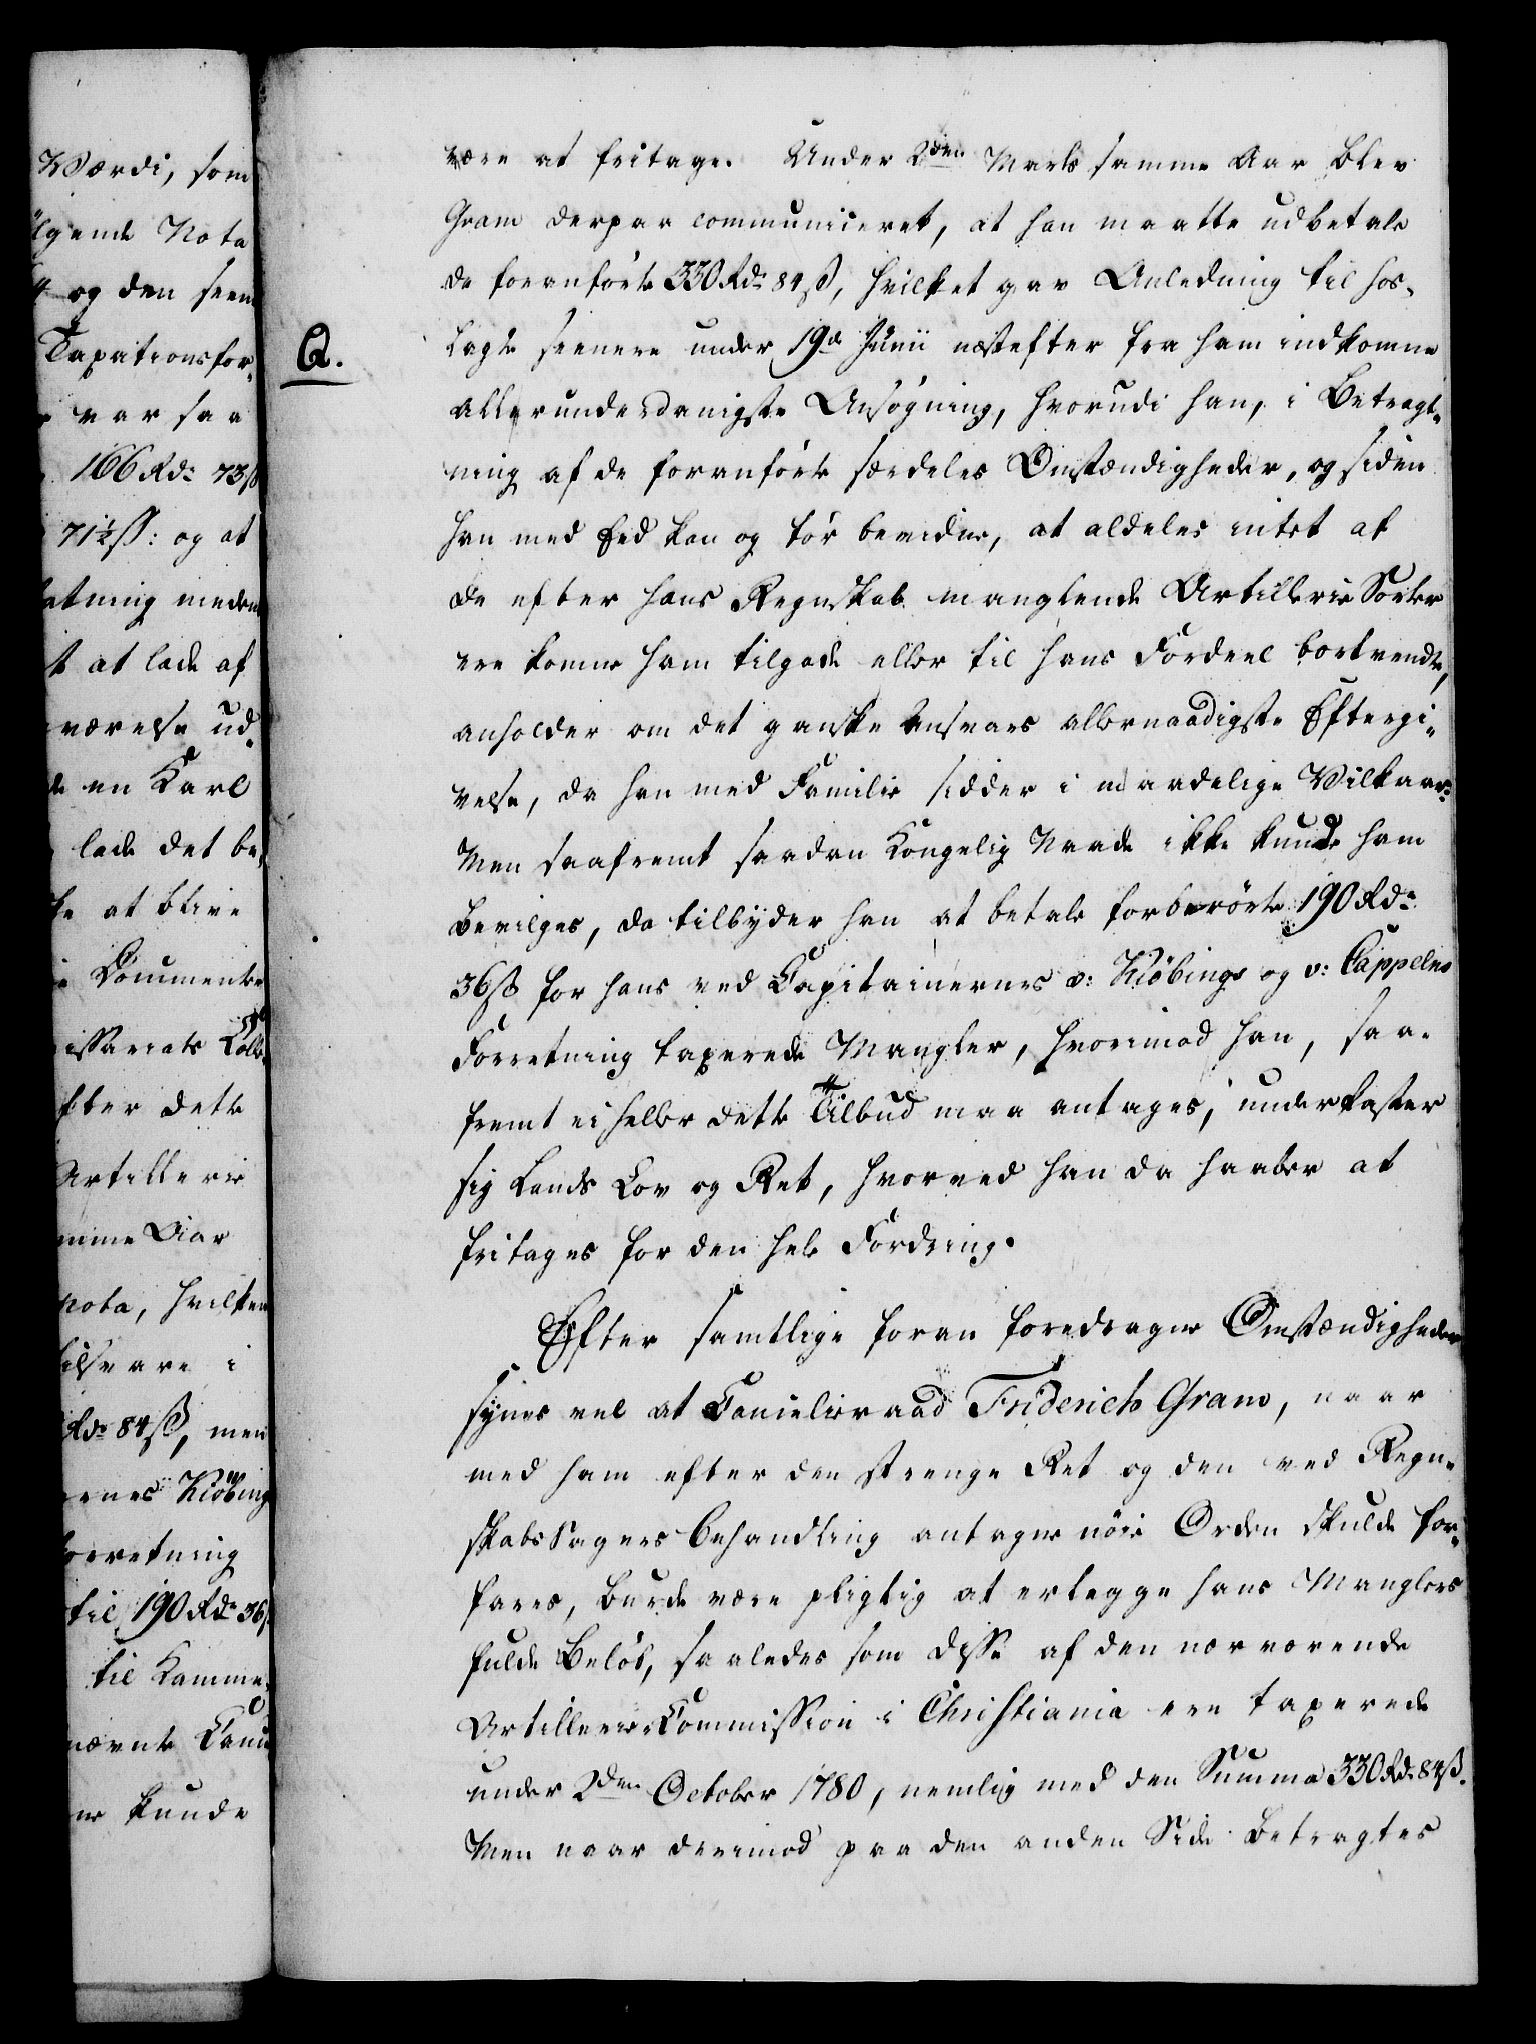 Værdi, som
lgende Nota
og den seen
Taxationsfor-
var saa
166 Rd: 73ß
71½ß: og at
retning meden
t at lade af
værelse ud-
de en Karl
lade det be-
ke at blive
Documenter
issariats Coll:
fter dette
Artillerie
mme Aar
Nota, hvilken
tilsvare i
Rd: 84ß, men
ernes Kiöbing
orretning
til 190 Rd: 36ß
til Kamme-
nævnte Canc
kunde
være at fritage. Under 2den Marts samme Aar blev
Gram derpaa communiceret, at han maatte udbetale
de foranförte 330 Rd: 84ß, hvilket gav Anledning til hos-
Q.
lagte seenere under 19de Junii næstefter fra ham indkomne
allerunderdanigste Ansögning, hvorudi han, i Betragt-
ning af de foranförte særdeles Omstændigheder, og siden
han med Eed kan og tör bevidne, at aldeles intet af
de efter hans Regnskab manglende Artillerie Sorter
ere komne ham tilgode eller til hans Fordeel bortvendte,
anholder om det ganske Ansvars allernaadigste Eftergi-
velse, da han med Familie sidder i maadelige Vilkaar:
Men saafremt saadan Kongelig Naade ikke kunde ham
bevilges, da tilbyder han at betale forberörte 190 Rd:
36ß for hans ved Capitainernes v: Kiöbings og v: Cappelns
Forretning taxerede Mangler, hvorimod han, saa-
fremt ei heller dette Tilbud maa antages, underkaster
sig Lands Lov og Ret, hvorved han da haaber at
fritages for den hele Fordring.
Efter samtlige foran foredragne Omstændigheder
synes vel at Cancelieraad Friderich Gram, naar
med ham efter den strenge Ret og den ved Regn-
skabs Sagers Behandling antagne nöie Orden skulde for-
fares, burde være pligtig at erlegge hans Manglers
fulde Belöb, saaledes som disse af den nærværende
Artillerie Commission i Christiania ere taxerede
under 2den October 1780, nemlig med den Summa 330 Rd: 84ß.
Men naar derimod paa den anden Side betragtes